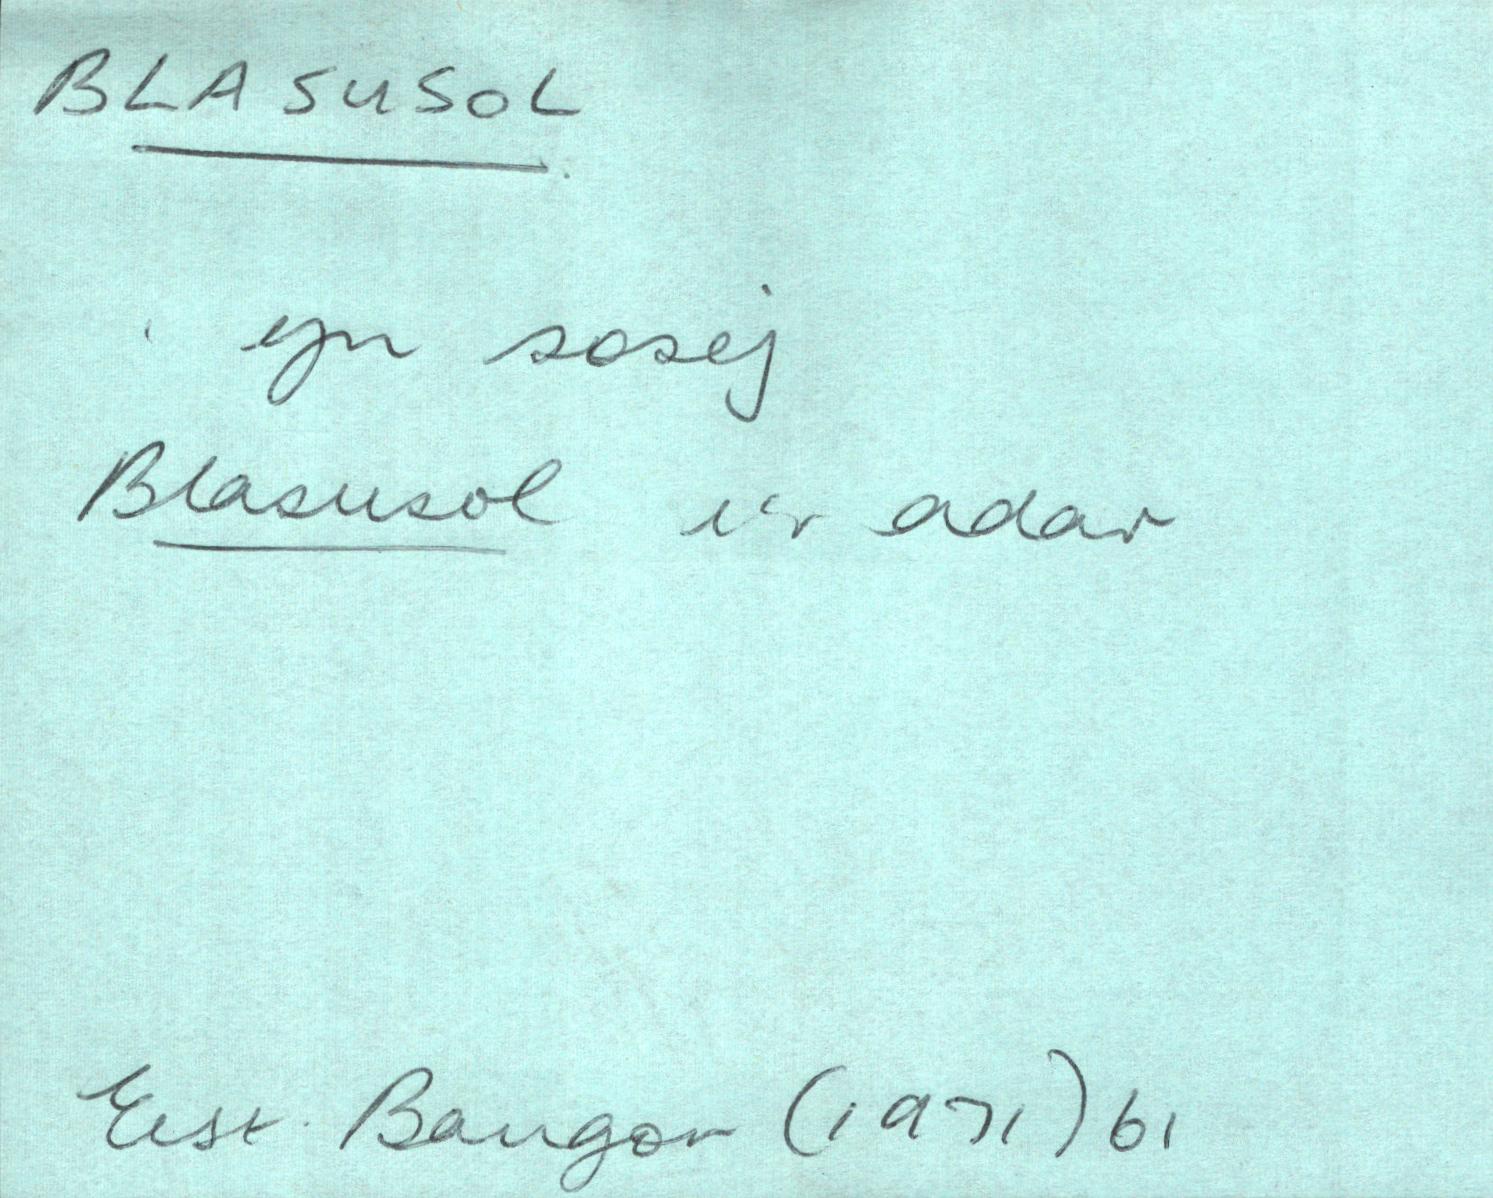 BLASUSOL
yn sosej
Blasusol i'r adar
Eist. Bangor (1971) 61